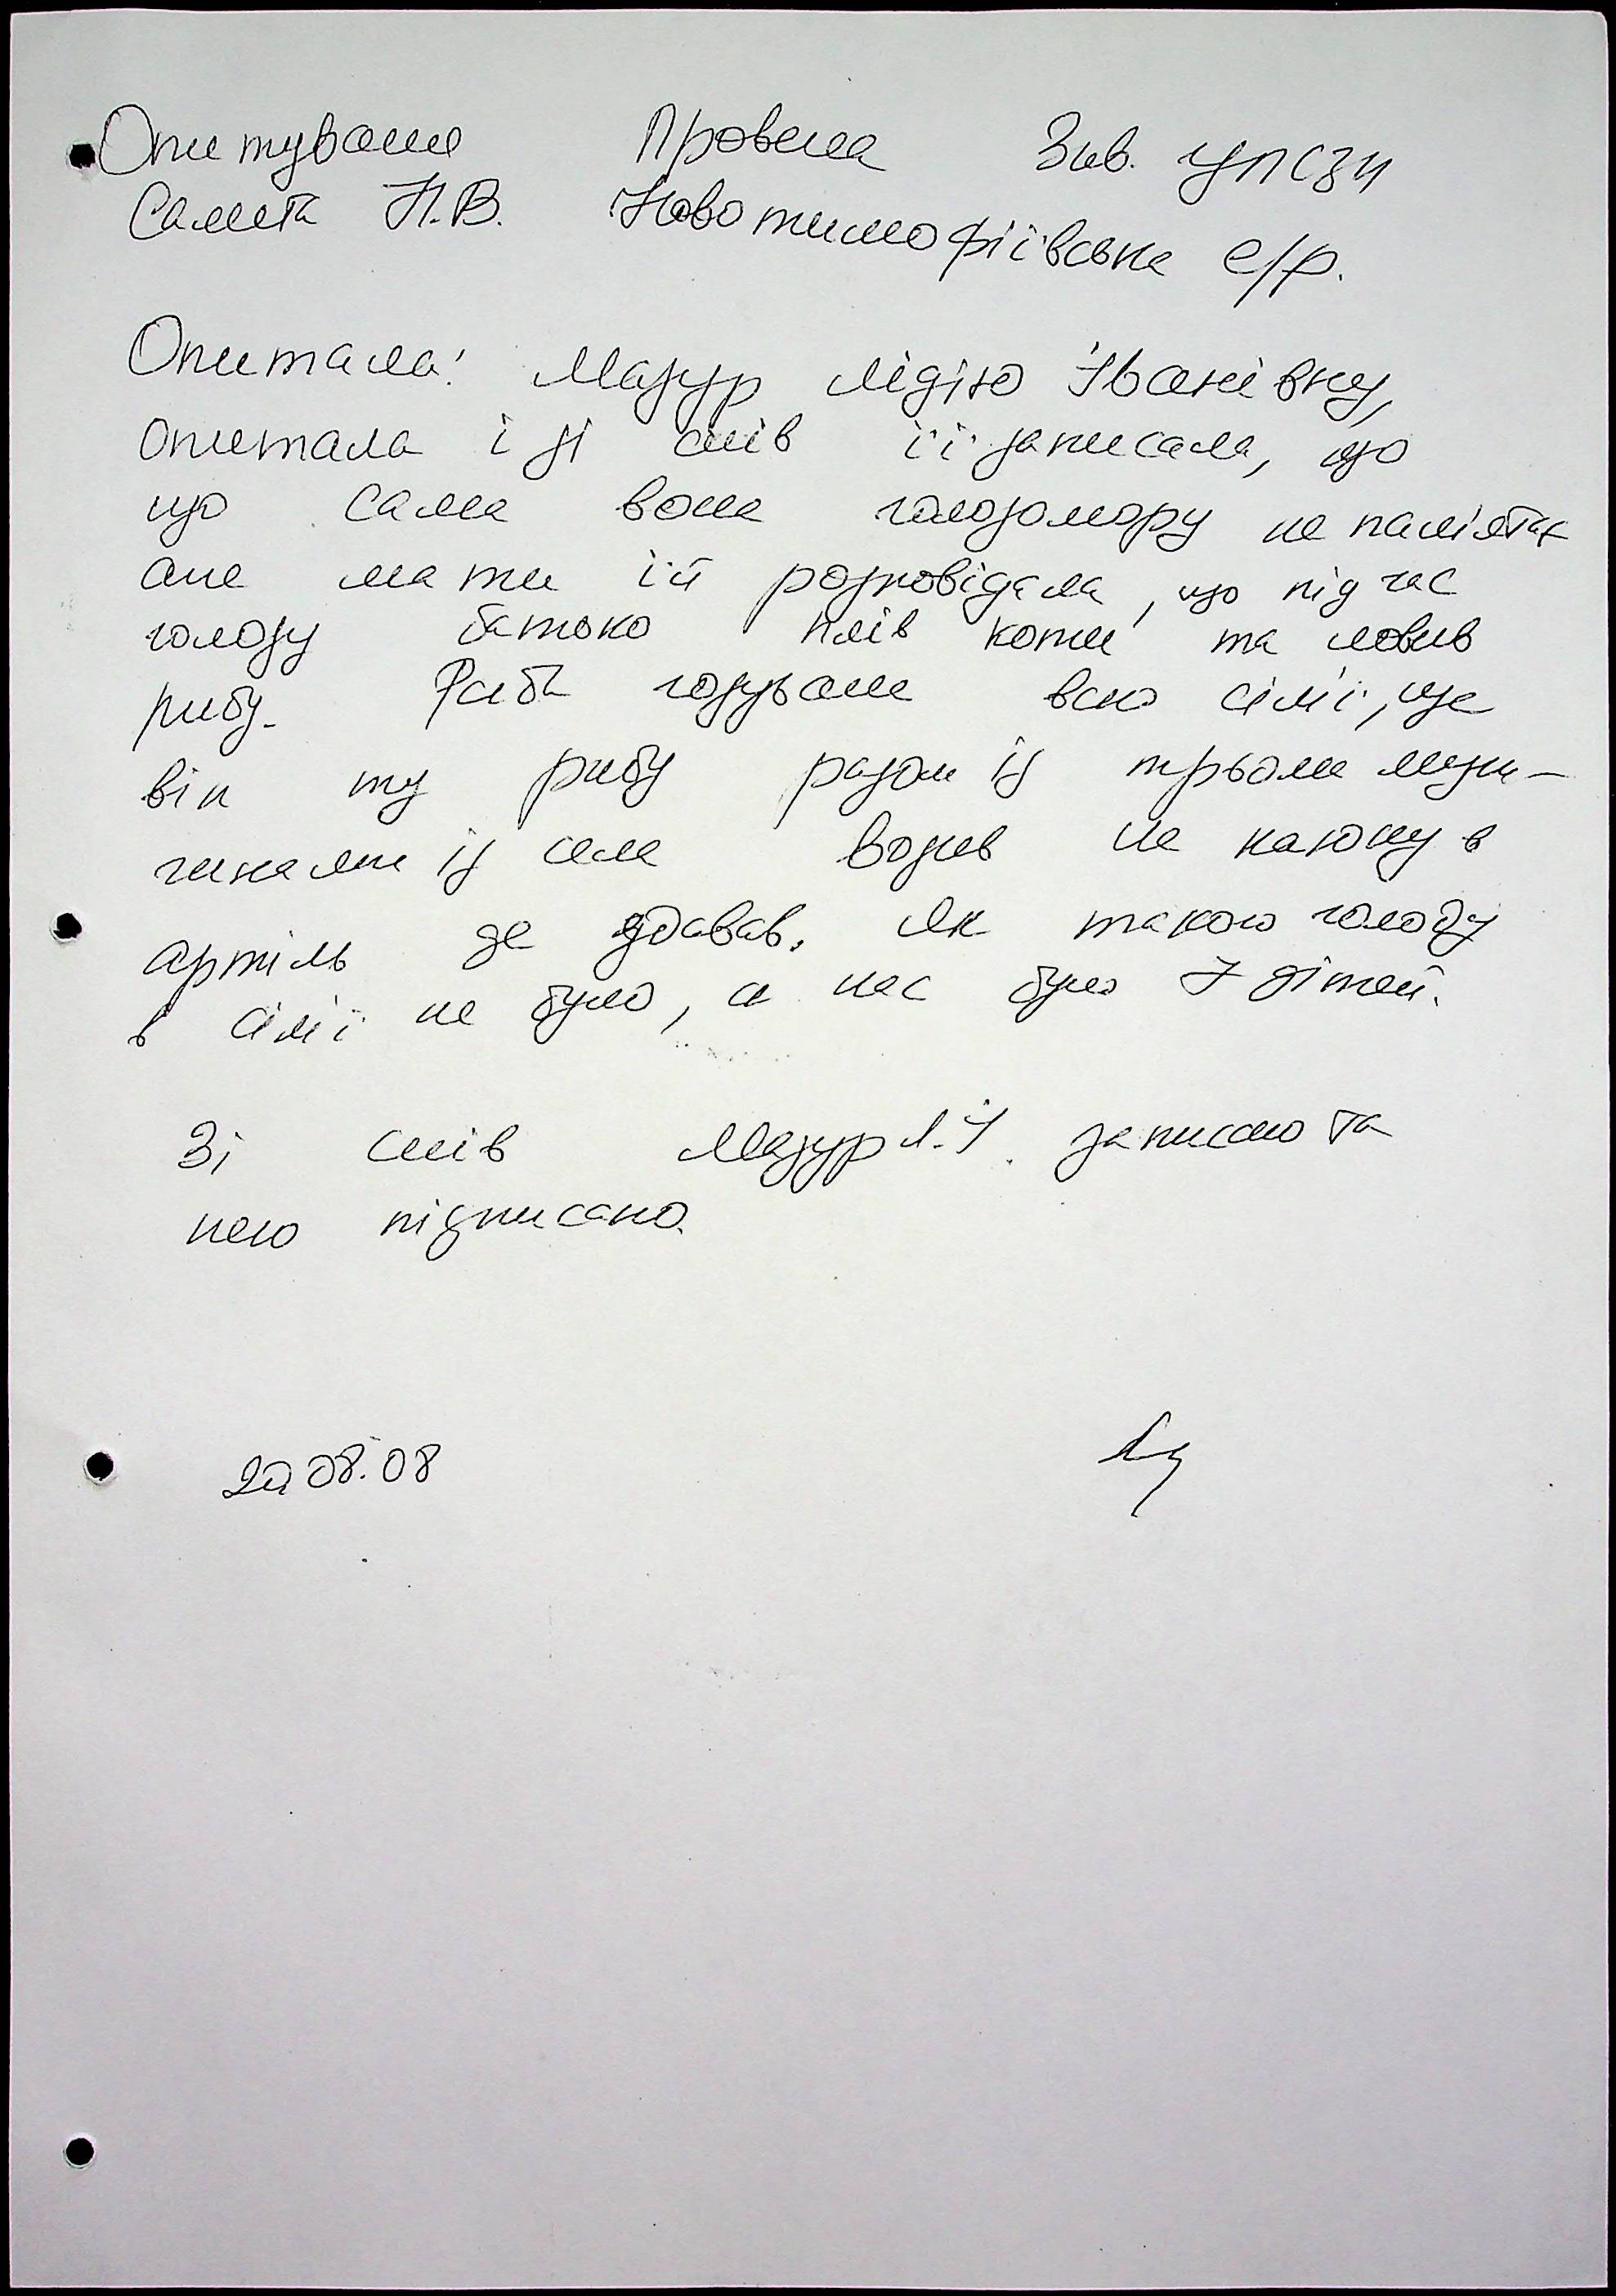 Опитування Провела Зав. УПСЗН
Саміта Н.В. Новотимофіївська с/р.
Опитала: Мазур Лідію Іванівну,
опитала і зі слів її записала, що
що сама вона голодомору не памʼятає
але мати їй розповідала, що під час
голоду батько плів коти та ловив
рибу. Риба годувала всю сімʼї, ще
він ту рибу разом із трьома мущи-
нами із села возив на каюку в
артіль де здавав. Як такого голоду
в сімʼї не було, а нас було 7 дітей.
Зі слів Мазур Л.І. записано та
нею підписано.
20.08.08